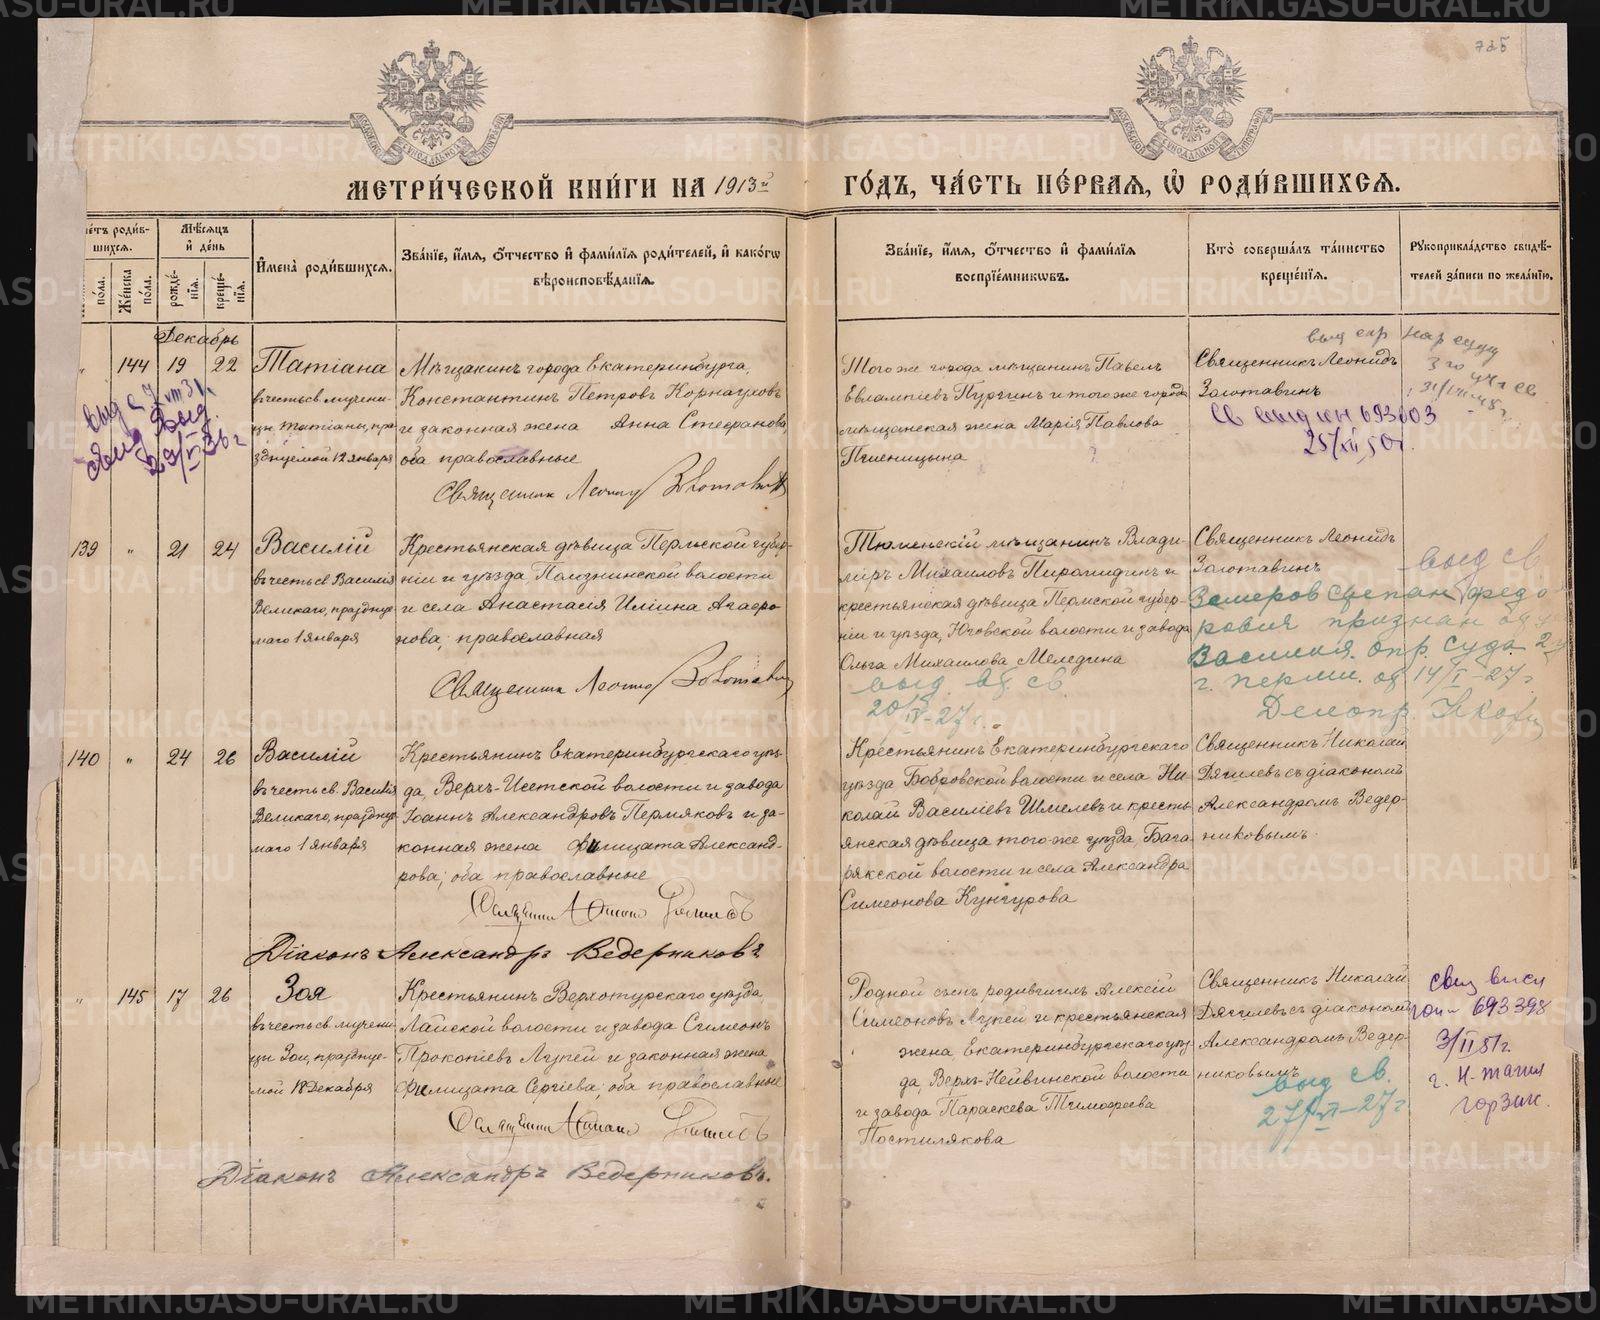 725
МЕТРИ́ЧЕСКОЙ КНИ́ГИ НА 1913й ГО́ДЪ, ЧА́СТЬ ПЕ́РВАЯ, Ѡ҆ РОДИ́ВШИХСЯ.
Мѣ́сяцъ и҆ де́нь
шихся.
по́ла.
Же́нска по́ла.
рожде́нія.
креще́нія.
И҆мена̀ роди́вшихся.
Зва́ніе, и҆́мя, ѻ҆́тчество и҆ фами́лія роди́телей, и҆ како́гѡ
вѣроисповѣ́данія.
Зва́ніе, и҆́мя, ѻ҆́тчество и҆ фами́лія
воспріе́мникѡвъ.
Кто̀ соверша́лъ та́инство
креще́нія.
Рꙋкоприкла́дство свидѣ́-
телей за́писи по жела́нію.
Декабрь
„ 144 19 22
Татіана
въ честь св. мучени-
цы Татіаны, пра-
зднуемой 12 января
Мѣщанинъ города Екатеринбурга,
Константинъ Петровъ Корнауховъ
и законная жена Анна Стефанова,
оба православные
Священник Леонид Золотавин
Того же города мѣщанинъ Павелъ
Евлампіевъ Пургинъ и того же города
мѣщанская жена Марія Павлова
Пшеницына
Священникъ Леонидъ
Золотавинъ
693603
25/XII 50г.
139 „ 21 24
Василій
въ честь св. Василія
Великаго, праздну-
емаго 1 января
Крестьянская дѣвица Пермской губер-
ніи и уѣзда, Полазнинской волости
и села Анастасія Иліина Агафо-
нова; православная
Священник Леонид Золотавин
Тюменскій мѣщанинъ Влади-
міръ Михаиловъ Пирамидинъ и
крестьянская дѣвица Пермской губер-
ніи и уѣзда, Юговской волости и завода
Ольга Михаилова Меледина
выд. св.
20/IV-27г.
Священникъ Леонидъ
Золотавинъ
выд св
Земеров Степан Федо
ровия признан отц
Василия. Опр. Суда 2 у
г. Перми. от 14/I-27г
Делопр.
140 „ 24 26
Василій
въ честь св. Василія
Великаго, праздну-
емаго 1 января
Крестьянинъ Екатеринбургскаго уѣз-
да, Верхъ-Исетской волости и завода
Іоаннъ Александровъ Пермяковъ и за-
конная жена Филицата Александ-
рова; оба православные
Священник Николай Дягилевъ
Діаконъ Александръ Ведерниковъ
Крестьянинъ Екатеринбургскаго
уѣзда Бобровской волости и села Ни-
колай Василіевъ Шмелевъ и кресть-
янская дѣвица того-же уѣзда Бага-
рякской волости и села Александра
Симеонова Кунгурова
Священникъ Николай
Дягилевъ съ діакономъ
Александромъ Ведер-
никовымъ
„ 145 17 26
Зоя
въ честь св. мучени-
цы Зои, праздну-
мой 18 Декабря
Крестьянинъ Верхотурскаго уѣзда,
Лайской волости и завода Симеонъ
Прокопіевъ Лупей и законная жена
Филицата Сергіева; оба православные
Священник Николай Дягилевъ
Діаконъ Александръ Ведерниковъ.
Родной сынъ родившихъ Алексій
Симеоновъ Лупей и крестьянская
жена Екатеринбургскаго уѣз-
да, Верхъ-Нейвинской волости
и завода Параскева Тимофеева
Постилякова
Священникъ Николай
Дягилевъ съ діакономъ
Александромъ Ведер-
никовымъ
выд св.
693398
3/II 51г.
г. Н-Тагил
горзаг.